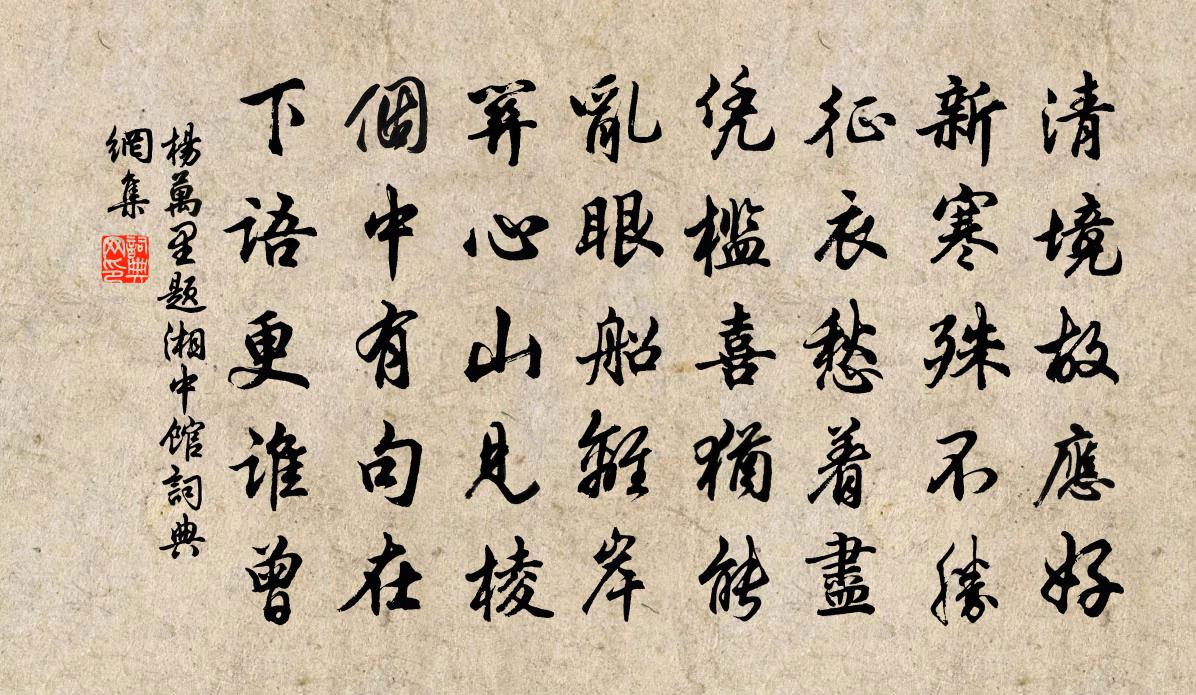 清境故應好
新寒殊不勝
征衣愁着盡
凭檻喜猶能
亂眼船離岸
開心山見棱
個中有句在
下語更誰曾
楊萬里題湘中館詞典
網集
詞典
网印